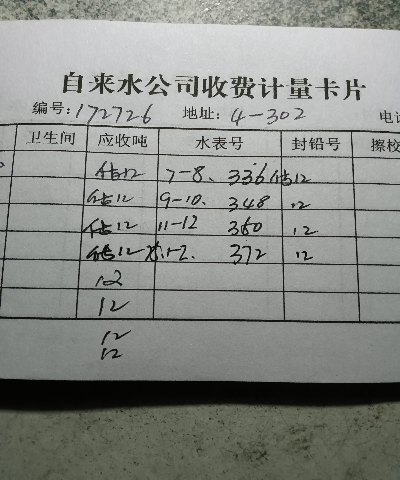 自来水公司收费计量卡片
编号:172726 地址: 4-302 电话
卫生间 应收吨 水表号 封铅号 擦校
估12 7-8. 336 估12
估12 9-10. 348 12
估12 11-12 360 12
估12 1-2. 372 12
12
12
12
12